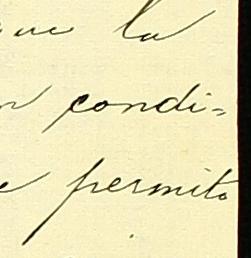 que la
condi-
permito